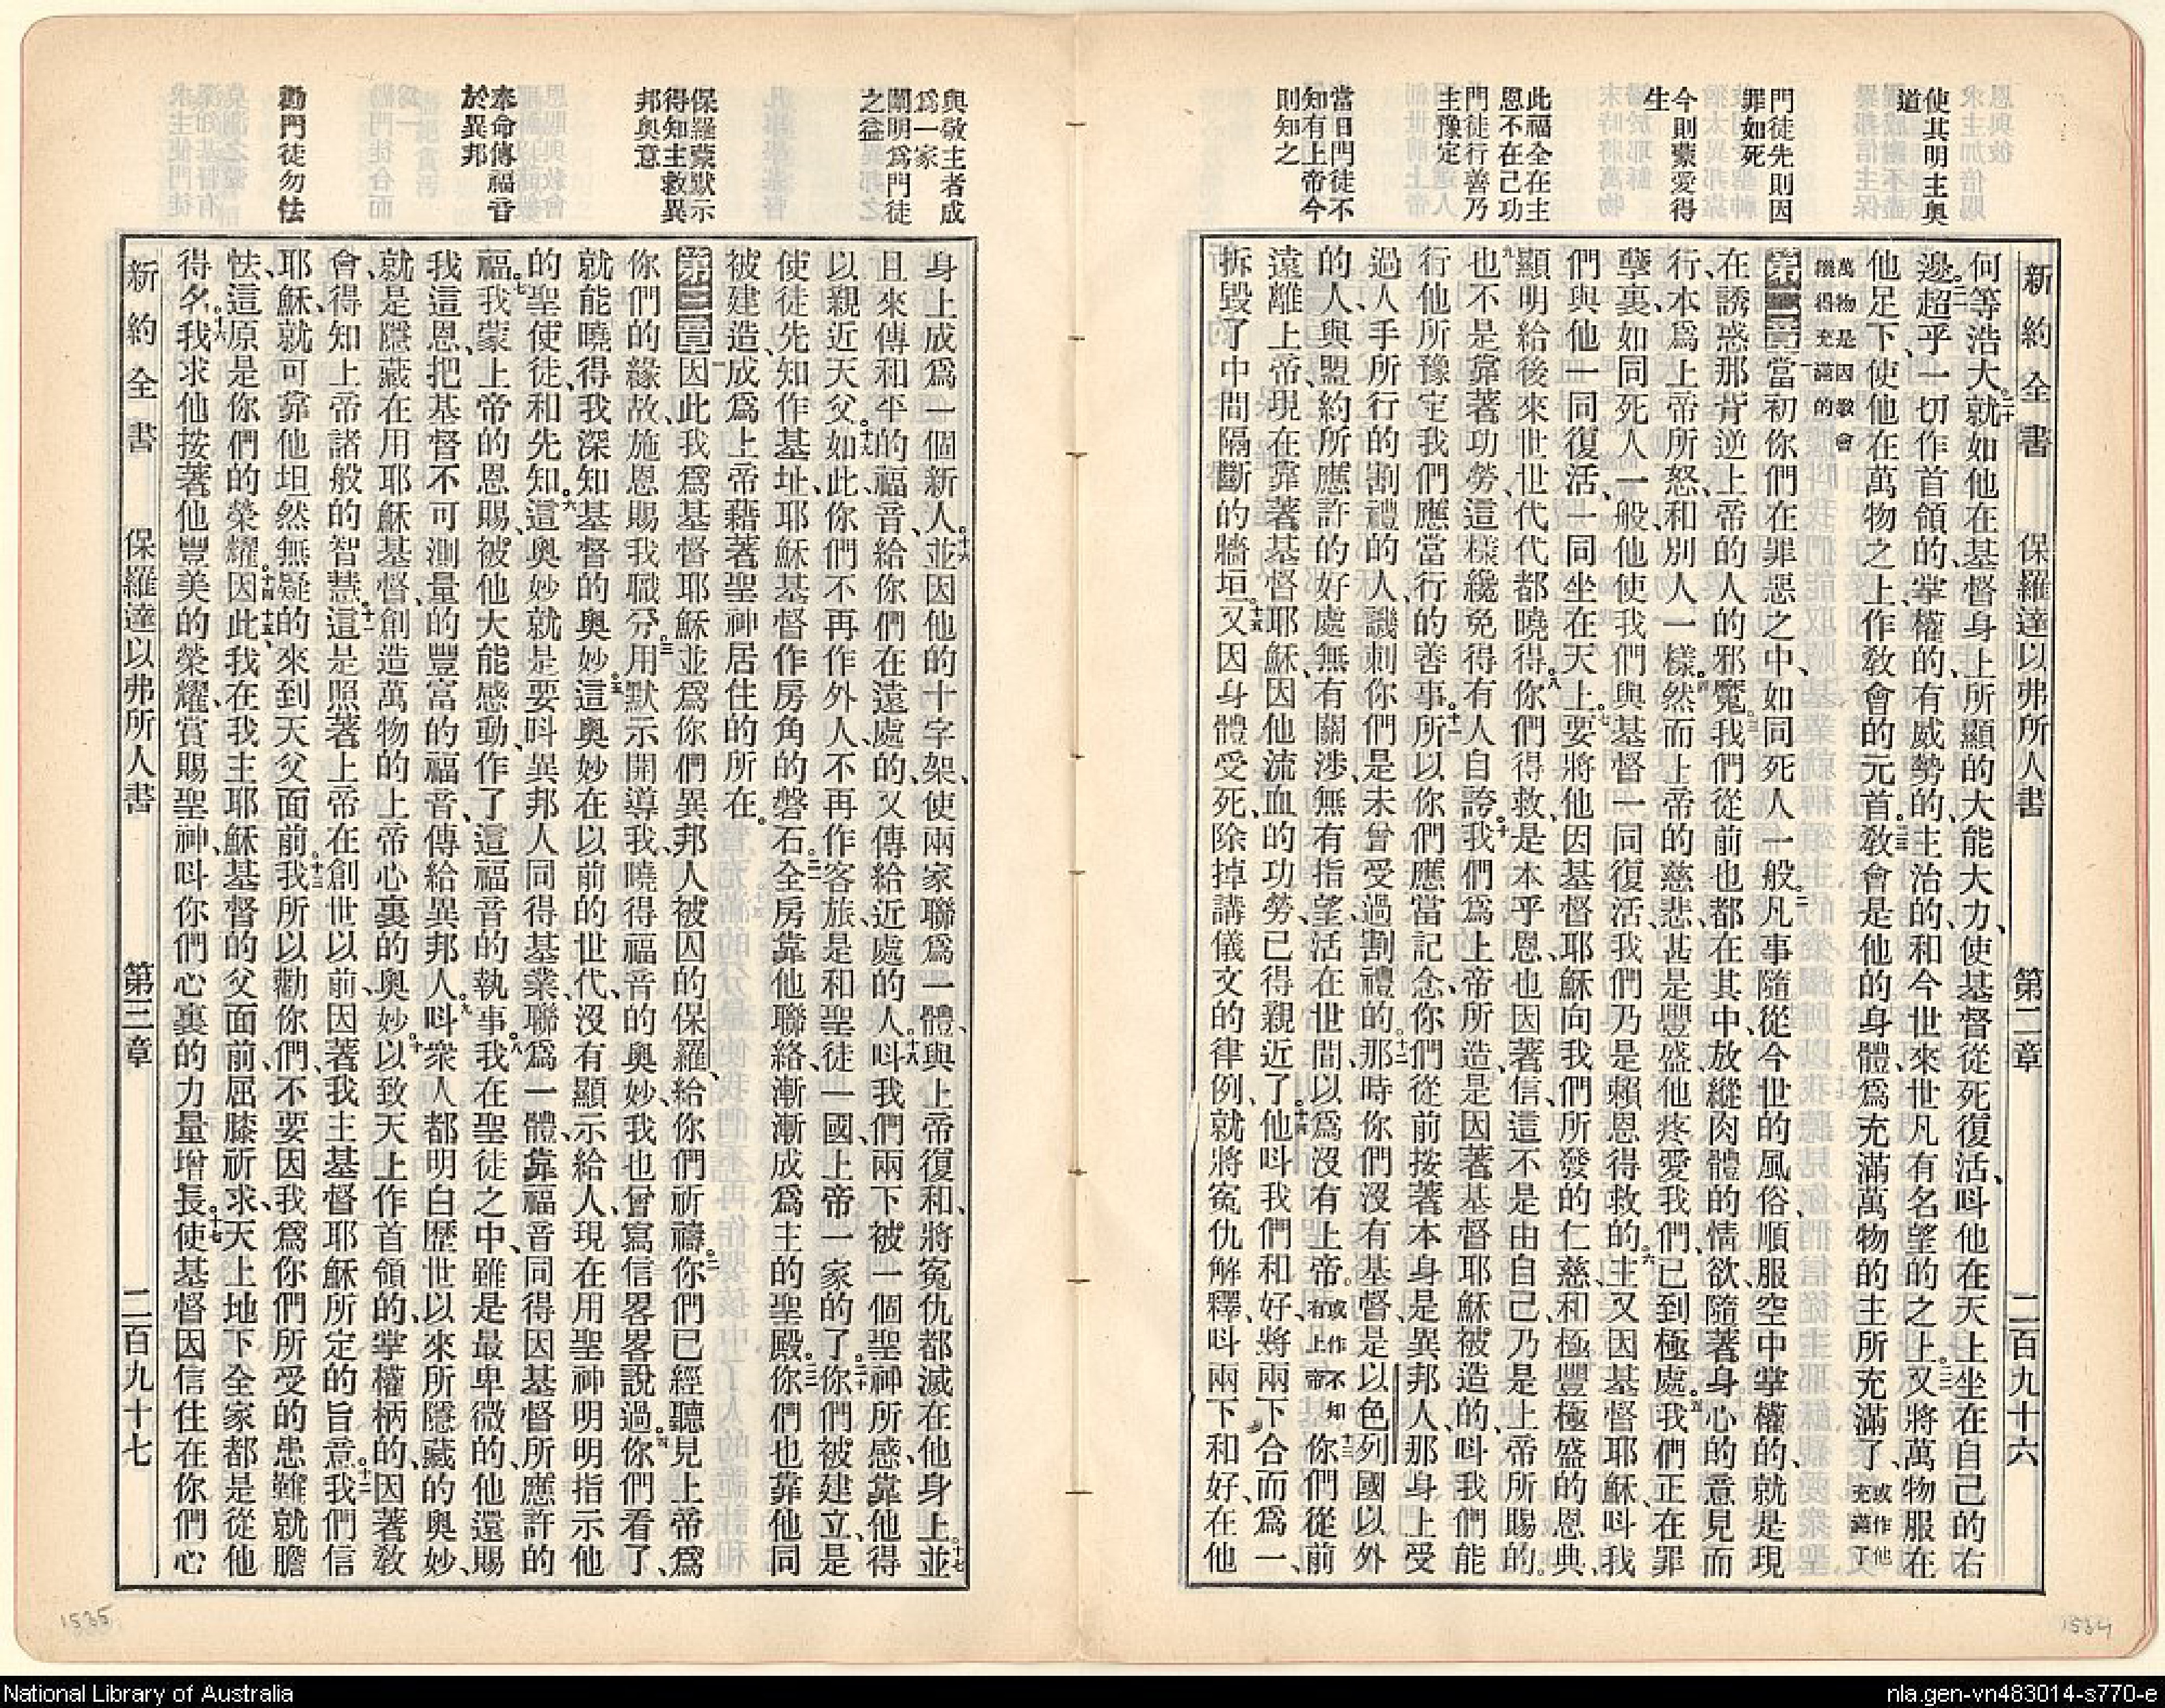 新約全書　保羅達以弗所人書　第二章　二百九十六
使其明主奧
道
門徒先則因
罪如死
今則蒙愛得
生
此福全在主
恩不在己功
門徒行善乃
主豫定
當日門徒不
知有上帝今
則知之
何等浩大、二十就如他在基督身上所顯的大能大力、使基督從死復活、呌他在天上坐在自己的右
邊、二一超乎一切作首領的、掌權的、有威勢的、主治的、和今世來世凡有名望的之上。二二又將萬物服在
他足下、使他在萬物之上作敎會的元首。二三敎會是他的身體、爲充滿萬物的主所充滿了、或作他充滿了
萬物是因敎會纔得充滿的
第二章一當初你們在罪惡之中、如同死人一般。二凡事隨從今世的風俗、順服空中掌權的、就是現
在誘惑那背逆上帝的人的邪魔。三我們從前也都在其中、放縱肉體的情欲、隨著身心的意見而
行、本爲上帝所怒、和別人一樣。四然而上帝的慈悲、甚是豐盛、他疼愛我們、已到極處。五我們正在罪
孽裏如同死人一般、他使我們與基督一同復活、我們乃是賴恩得救的。六主又因基督耶穌、呌我
們與他一同復活、一同坐在天上。七要將他因基督耶穌向我們所發的仁慈、和極豐極盛的恩典、
顯明給後來世世代代都曉得。八你們得救、是本乎恩、也因著信、這不是由自己、乃是上帝所賜的。
九也不是靠著功勞、這樣纔免得有人自誇。十我們爲上帝所造、是因著基督耶穌被造的、呌我們能
行他所豫定我們應當行的善事。十一所以你們應當記念、你們從前按著本身是異邦人、那身上受
過人手所行的割禮的人、譏刺你們是未曾受過割禮的。十二那時你們沒有基督、是以色列國以外
的人、與盟約所應許的好處無有關涉、無有指望、活在世間、以爲沒有上帝。或作不知有上帝十三你們從前
遠離上帝、現在靠著基督耶穌、因他流血的功勞、已得親近了。十四他呌我們和好、將兩下合而爲一、
拆毀了中間隔斷的牆垣。十五又因身體受死、除掉講儀文的律例、就將寃仇解釋、呌兩下和好、在他
與敬主者成
爲一家
闡明爲門徒
之益
保羅蒙默示
得知主救異
邦奧意
奉命傳福音
於異邦
勸門徒勿怯
身上成爲一個新人、十六並因他的十字架、使兩家聯爲一體、與上帝復和、將寃仇都滅在他身上。十七並
且來傳和平的福音給你們在遠處的、又傳給近處的人。十八呌我們兩下被一個聖神所感、靠他得
以親近天父。十九如此、你們不再作外人、不再作客旅、是和聖徒一國、上帝一家的了。二十你們被建立、是
使徒先知作基址、耶穌基督作房角的磐石。二一全房靠他聯絡、漸漸成爲主的聖殿。二二你們也靠他同
被建造、成爲上帝藉著聖神居住的所在。
第三章一因此我爲基督耶穌並爲你們異邦人被囚的保羅、給你們祈禱。二你們已經聽見上帝爲
你們的緣故、施恩賜我職分。三用默示開導我、曉得福音的奧妙、我也曾寫信畧畧說過。四你們看了、
就能曉得我深知基督的奧妙。五這奧妙在以前的世代、沒有顯示給人、現在用聖神明明指示他
的聖使徒、和先知。六這奧妙就是要呌異邦人同得基業、聯爲一體、靠福音同得因基督所應許的
福。七我蒙上帝的恩賜、被他大能感動、作了這福音的執事。八我在聖徒之中、雖是最卑微的、他還賜
我這恩、把基督不可測量的豐富的福音、傳給異邦人。九呌衆人都明白歷世以來所隱藏的奧妙、
就是隱藏在用耶穌基督、創造萬物的上帝心裏的奧妙。十以致天上作首領的、掌權柄的、因著敎
會、得知上帝諸般的智慧。十一這是照著上帝在創世以前、因著我主基督耶穌所定的旨意。十二我們信
耶穌、就可靠他坦然無疑的來到天父面前。十三我所以勸你們、不要因我爲你們所受的患難就膽
怯、這原是你們的榮耀。十四十五因此我在我主耶穌基督的父面前、屈膝祈求、天上地下全家都是從他
得名。十六我求他按著他豐美的榮耀、賞賜聖神、呌你們心裏的力量增長。十七使基督因信住在你們心
新約全書　保羅達以弗所人書　第三章　二百九十七
1535
1534
National Library of Australia
nla.gen-vn483014-s770-e